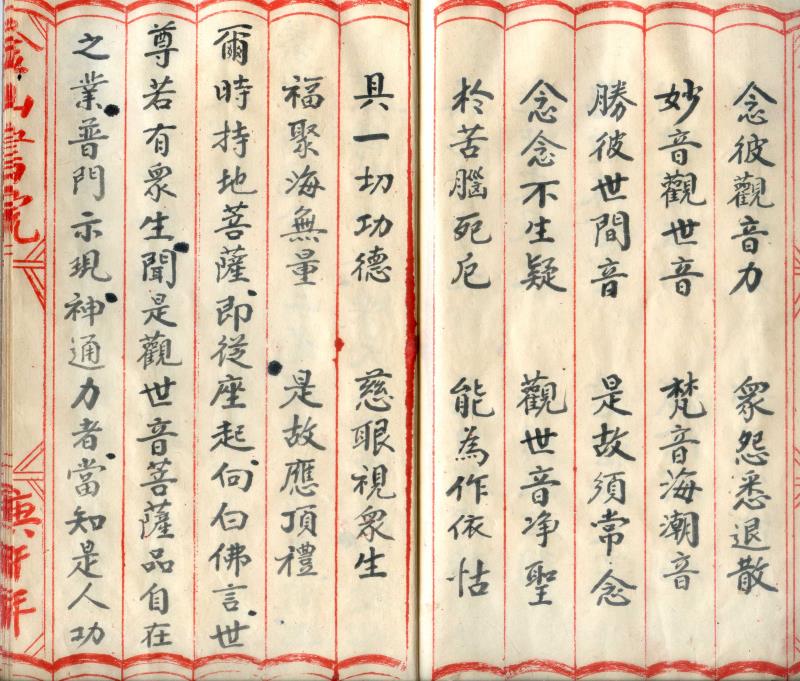 念彼觀音力　衆怨悉退散
妙音觀世音　梵音海潮音
勝彼世間音　是故須常念
念念不生疑　觀世音净聖
於苦腦死厄　能為作依怙
具一切功德　慈眼視衆生
福聚海無量　是故應頂禮
爾時持地菩薩即從座起向白佛言世
尊若有衆生聞是觀世音菩薩品自在
之業普門示現神通力者當知是人功
山書院